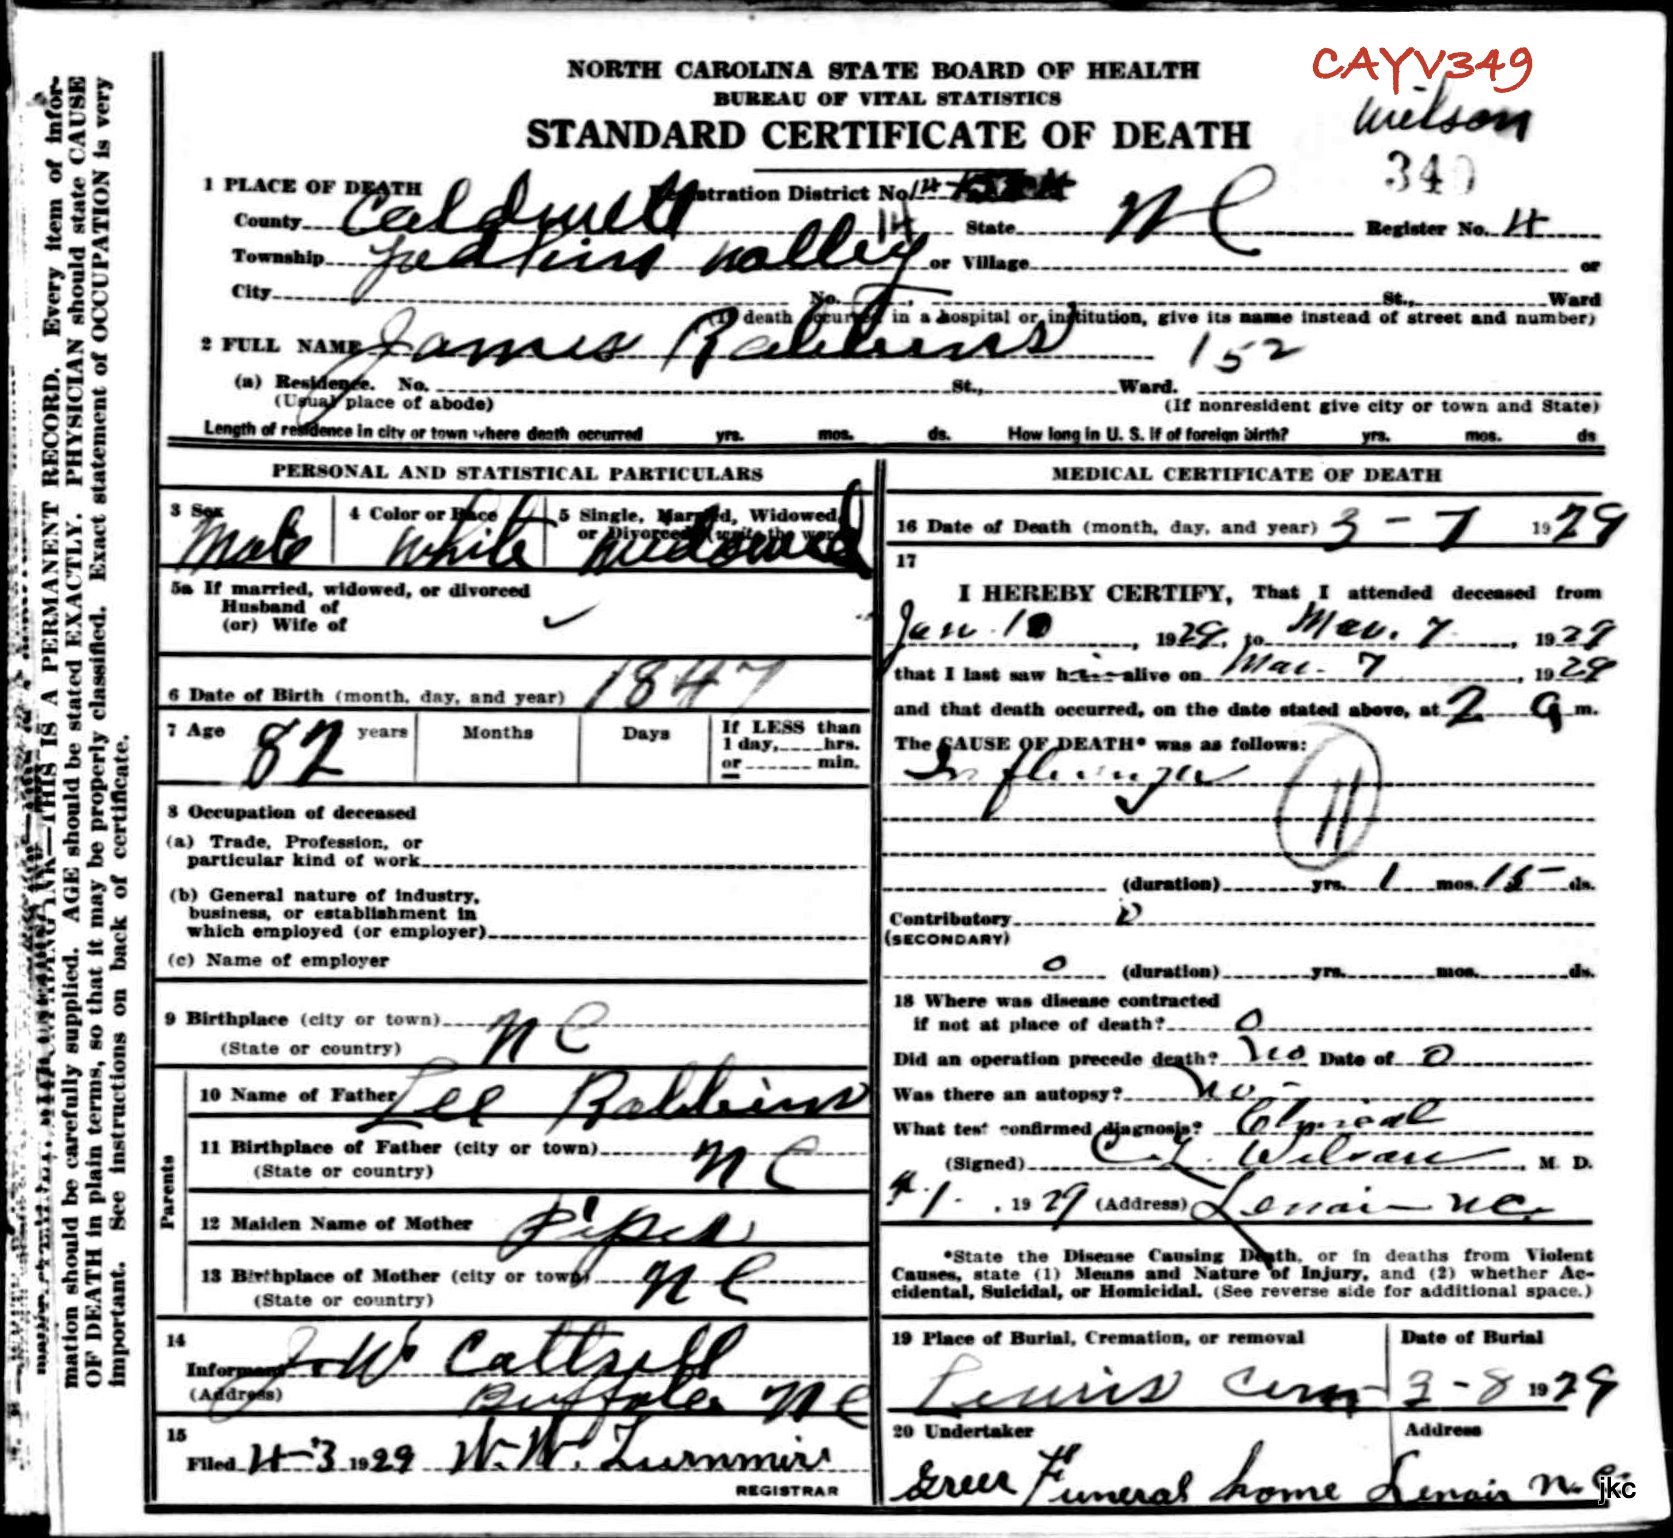 CAYV349
NORTH CAROLINA STATE BOARD OF HEALTH
BUREAU OF VITAL STATISTICS
STANDARD CERTIFICATE OF DEATH
Wilson
340
1 PLACE OF DEATH Registration District No. 14
County Caldwell 14 State N C Register No. 4
Township Yadkins Valley or Village or
City No. St., Ward
(If death occurred in a hospital or institution, give its name instead of street and number)
2 FULL NAME James Robbins 152
(a) Residence. No. St., Ward.
(Usual place of abode) (If nonresident give city or town and State)
Length of residence in city or town where death occurred yrs. mos. ds. How long in U. S. if of foreign birth? yrs. mos. ds
PERSONAL AND STATISTICAL PARTICULARS
3 Sex 4 Color or Race 5 Single, Married, Widowed,
or Divorced (write the word)
Male White Widowed
5a If married, widowed, or divorced
Husband of
(or) Wife of
6 Date of Birth (month, day, and year) 1847
7 Age 82 years Months Days If LESS than
1 day, hrs.
or min.
8 Occupation of deceased
(a) Trade, Profession, or
particular kind of work
(b) General nature of industry,
business, or establishment in
which employed (or employer)
(c) Name of employer
9 Birthplace (city or town) N C
(State or country)
Parents
10 Name of Father Lee Robbins
11 Birthplace of Father (city or town) N C
(State or country)
12 Maiden Name of Mother Piper
13 Birthplace of Mother (city or town) N C
(State or country)
14
Informant J W Cattrell
(Address) Buffalo N C
15
Filed 4-3 1929 W. W.
REGISTRAR
MEDICAL CERTIFICATE OF DEATH
16 Date of Death (month, day, and year) 3 - 7 1929
17
I HEREBY CERTIFY, That I attended deceased from
Jan. 10, 1929, to Mar. 7, 1929
that I last saw him alive on Mar. 7, 1929
and that death occurred, on the date stated above, at 2 a m.
The CAUSE OF DEATH* was as follows:
Influenza
11
(duration) yrs. 1 mos. 15 ds.
Contributory 0
(SECONDARY)
0 (duration) yrs. mos. ds.
18 Where was disease contracted
if not at place of death? 0
Did an operation precede death? No Date of 0
Was there an autopsy? No
What test confirmed diagnosis? Clinical
(Signed) C. L. Wilson, M. D.
4.1., 1929 (Address) Lenoir N C.
*State the Disease Causing Death, or in deaths from Violent
Causes, state (1) Means and Nature of Injury, and (2) whether Ac-
cidental, Suicidal, or Homicidal. (See reverse side for additional space.)
19 Place of Burial, Cremation, or removal Date of Burial
Lewis Cem 3-8 1929
20 Undertaker Address
Greer Funeral home Lenoir N. C.
jkc
THIS IS A PERMANENT RECORD. Every item of infor-
mation should be carefully supplied. AGE should be stated EXACTLY. PHYSICIAN should state CAUSE
OF DEATH in plain terms, so that it may be properly classified. Exact statement of OCCUPATION is very
important. See instructions on back of certificate.